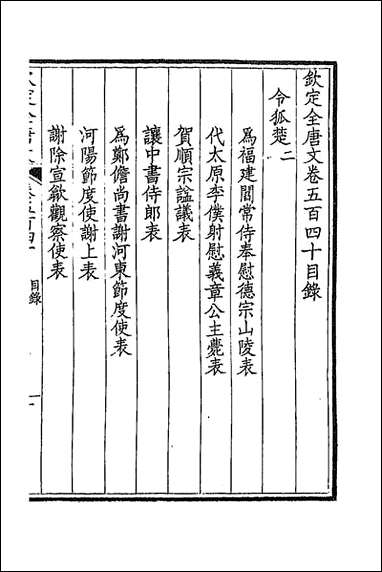 欽定全唐文卷五百四十目錄
令狐楚二
為福建閻常侍奉慰德宗山陵表
代太原李僕射慰義章公主薨表
賀順宗謚議表
讓中書侍郎表
為鄭儋尚書謝河東節度使表
河陽節度使謝上表
謝除宣歙觀察使表
目錄
一